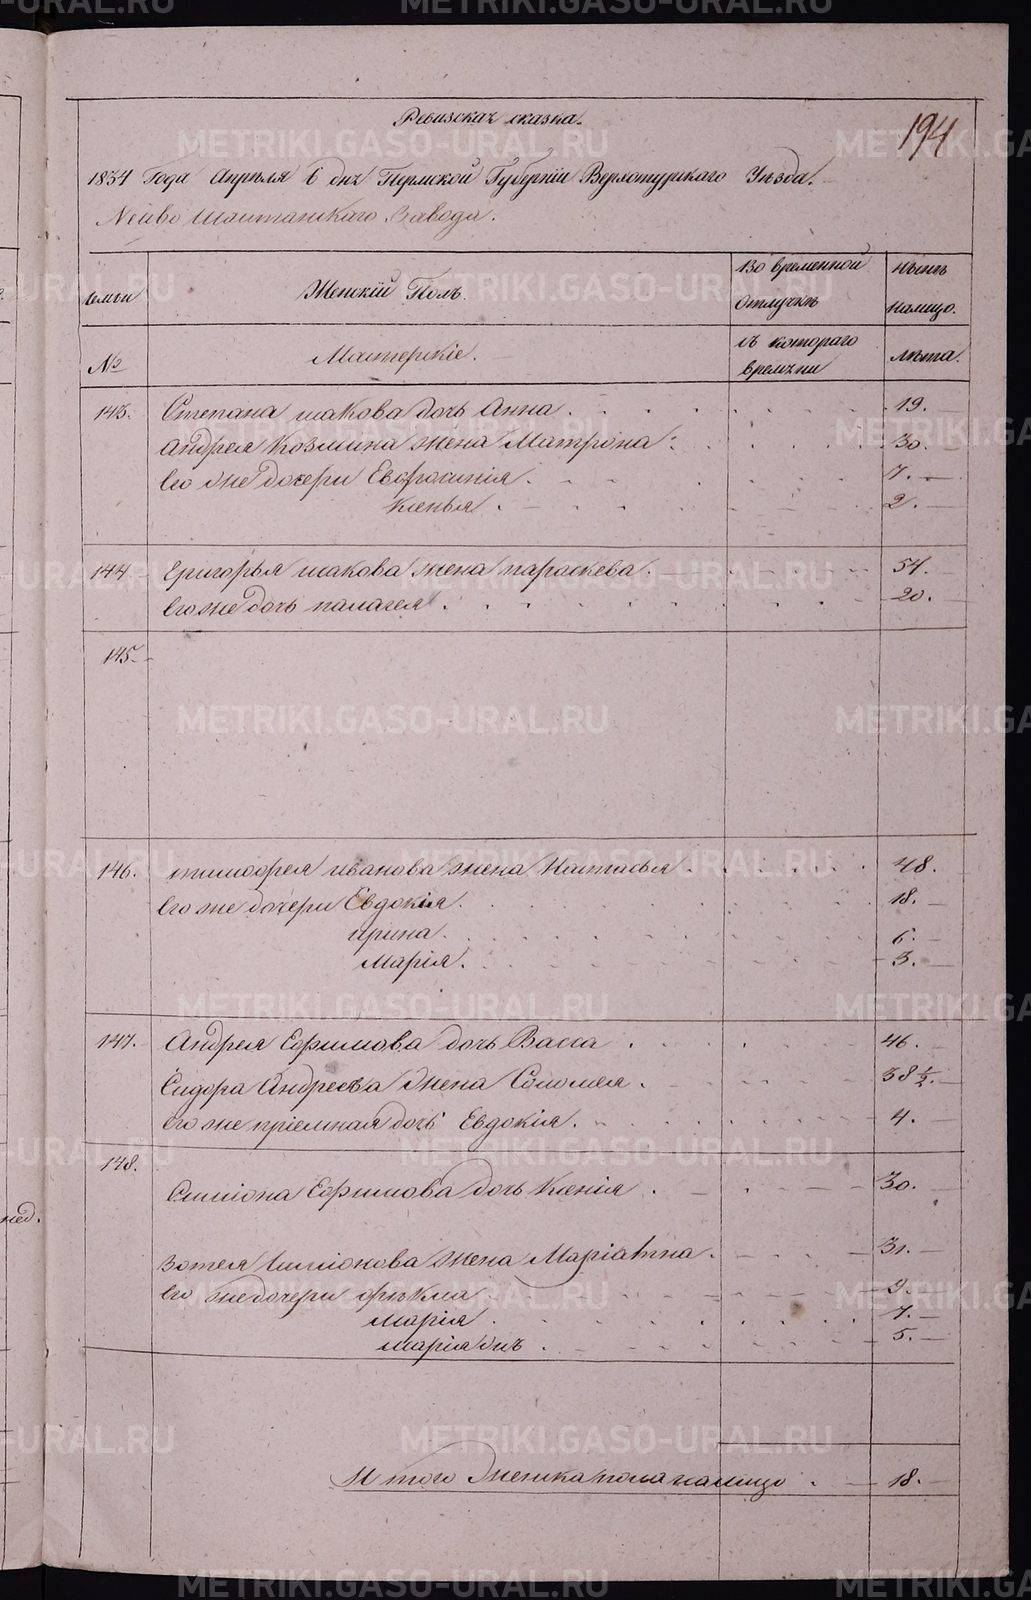 Ревизская сказка.
194
1834 Года Апреля 6 дня Пермской Губернiи Верхотурскаго Уезда.
Нейво Шайтанскаго Завода.
Семьи
Женскiй Полъ.
Во временной отлучкѣ
Нынѣ налицо.
№
Мастерскiе.
съ котораго времяни
лѣта.
143. Степана Иакова дочь Анна. 19.
Андрея Козмина жена Матрона: 30.
Его же дочери Евфросинiя. 7.
Ксенья. 2.
144 Григорья Иакова жена параскева. 54.
Его же дочь палагея. 20.
145.
146. тимофея иванова жена Настасья. 48.
Его же дочери Евдокiя. 18.
ирина. 6.
Марiя. 3.
147. Андрея Ефимова дочь Васса. 46.
Сидора Андреева жена Соломея. 38 1/2.
его же прiемная дочь Евдокiя. 4.
148.
Симiона Ефимова дочь Ксенiя. 30.
Зотея Симiонова жена Марiамна. 31.
Его же дочери фекла 9.
Марiя. 7.
марiя же. 5.
И того женска пола налицо. 18.
METRIKI.GASO-URAL.RU